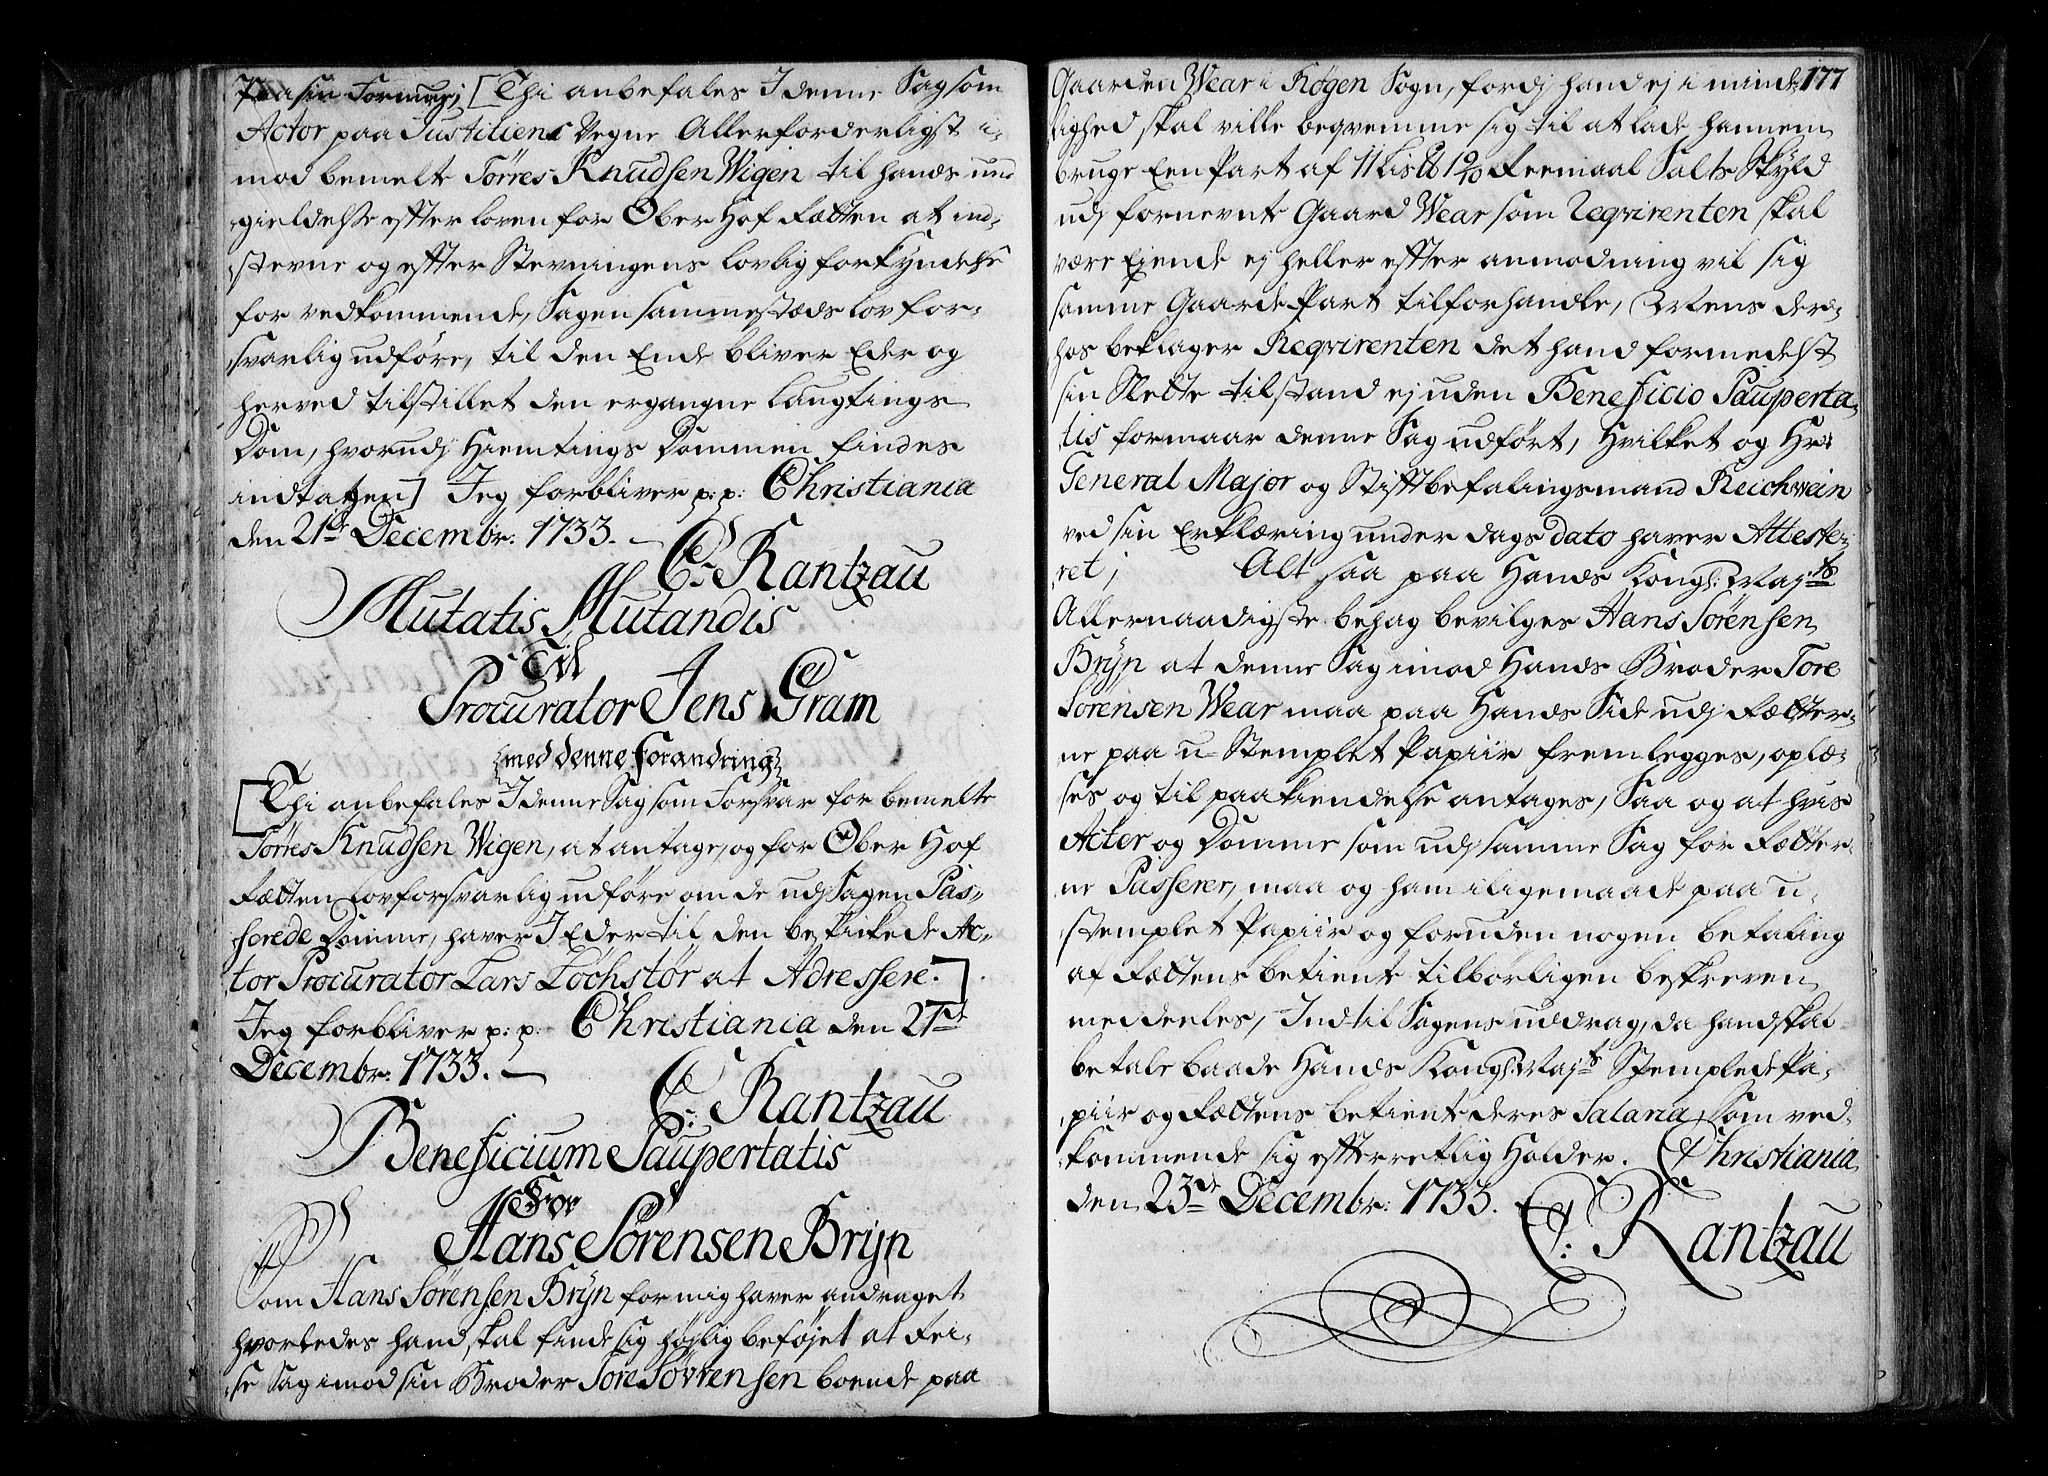 Paa sin Formue; [Thi anbefales I denne Sag som
Actor paa Justitiens Vegne Allerforderligst i-
mod bemelte Törres Knudsen Wigen til hands und
gieldelsse effter loven for Ober Hof Retten at ind-
stevne og effter Stevningens lovlig forkyndelse
for vedkommende, Sagen sammestæds lov for-
svarlig udföre, til den Ende bliver Eder og
herved tilstillet den ergangne Laugtings
Dom, hvorudj Hiemtings Dommen findes
indtagen] Jeg forbliver p: p: Christiania
den 21de Decembr: 1733.
C. Rantzau
Mutatis Mutandis
Til
Procurator Jens Gram
med denne forandring
[Thi anbefales I denne Sag som Forsvar for bemelte
Törres Knudsen Wigen, at antage, og for Ober Hof
Retten lovforsvarlig udföre om de udj Sagen Pas-
serede Domme, haver I Eder til den beskikede Ac-
tor Procurator Lars Lochstör at Adressere.]
Jeg forbliver p: p: Christiania den 21de
Decembr: 1733.
C: Rantzau
Beneficium Paupertatis
For
Hans Sörensen Brijn
Som Hans Sörensen Brijn for mig haver andraget
hvorledes hand skal finde sig höjlig beföjet at Rei-
se Sag imod sin Broder Tore Sövrensen boende paa
177
Gaarden Wear i Røgen Sogn, fordj hand ej i mind-
lighed skal ville beqvemme sig til at lade hannem
bruge Een Part af 11 Lis℔ Reemaal Salts Skyld
udj fornevnte Gaard Wear som Reqvirenten skal
være Eiende ej heller effter anmodning vil sig
samme Gaarde Part tilforhandle, Mens der-
hos beklager Reqvirenten det hand formedelst
sin Slette tilstand ej uden Beneficio Pauperta-
tis formaar denne Sag udfört, hvilket og Hr:
General Major og Stifftbefalingsmand Reichwein
ved sin Erklæring under dags dato haver Atteste-
ret; Alt saa paa Hands Kongl: Majts
Allernaadigste behag bevilges Hans Sörensen
Brijn at denne Sag imod Hands Broder Tore
Sörensen Wear maa paa Hands Side udj Retter-
ne paa u-Stemplet Papiir fremlegges, oplæ-
ses og til paakiendelsse antages, Saa og at hvis
Acter og Domme som udj samme Sag for Retter-
ne Passerer, maa og ham iligemaade paa u-
stemplet Papiir og foruden nogen betaling
af Rettens betiente tilbörligen beskreven
meddeeles, Indtil Sagens uddrag, da hand skal
betale baade Hands Kongl: Majts Stemplede Pa-
piir og Rettens betiente deres Salaria, Som ved-
kommende sig effterretlig Holder. Christiania
den 23de Decembr: 1733.
C: Rantzau